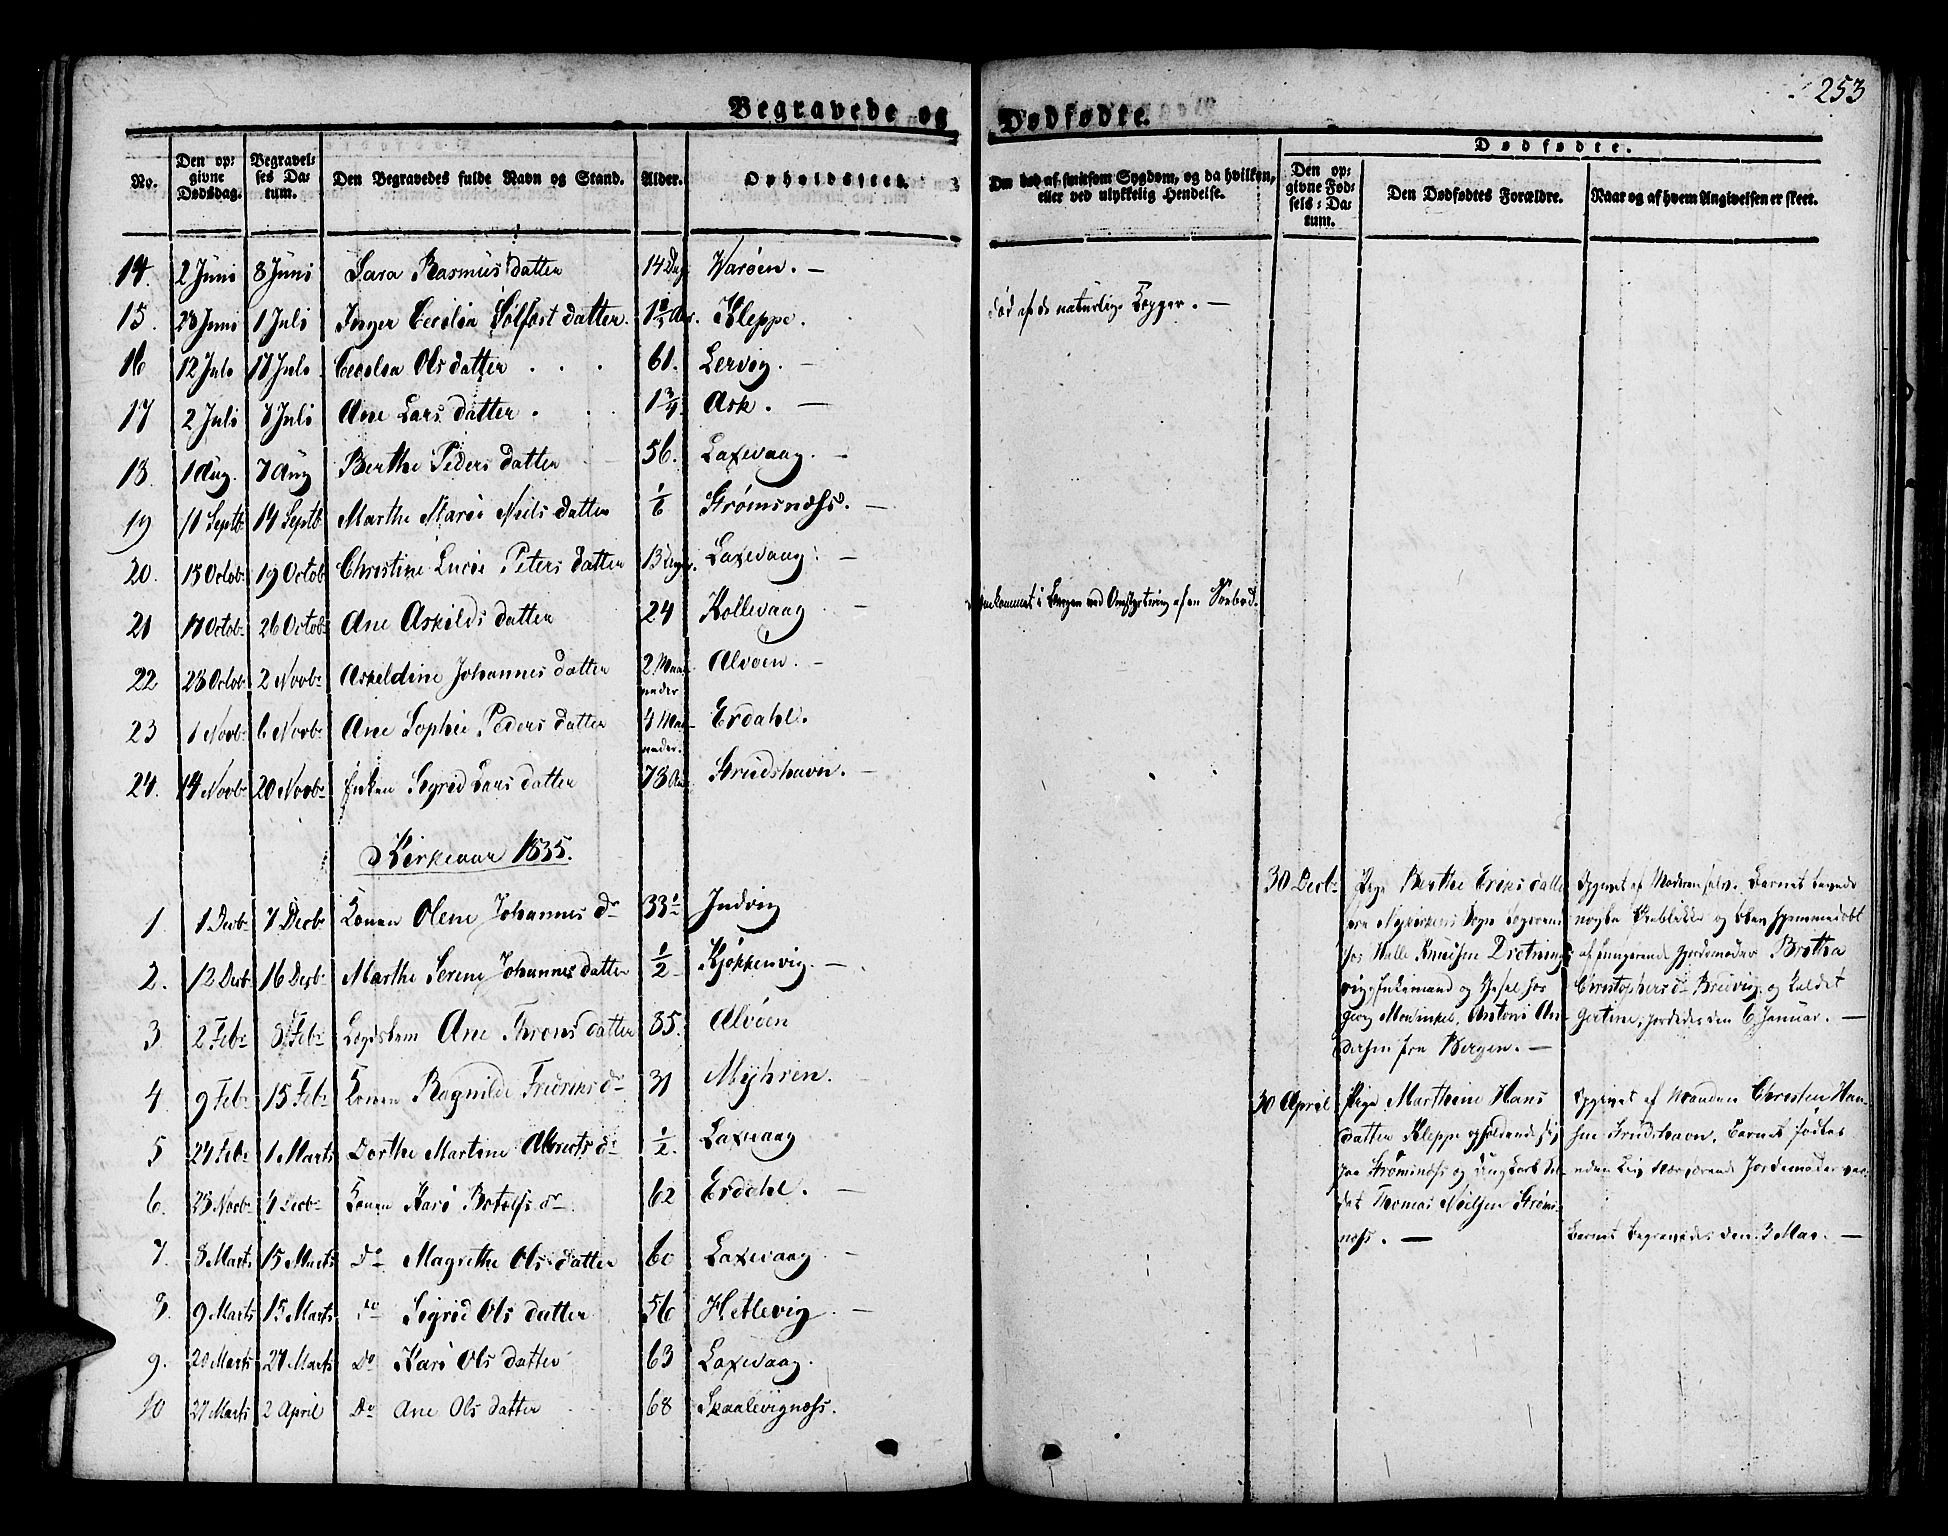 253
Begravede og Dødfødte.
Dødfødte.
No. Den opgivne Dødsdag. Begravelses Datum. Den Begravedes fulde Navn og Stand. Alder. Opholdssted. Om død af smitsom Sygdom, og da hvilken, eller ved ulykkelig Hendelse. Den opgivne Fødsels-Datum. Den Dødfødtes Forældre. Naar og af hvem Angivelsen er skeet.
14. 2 Juni 8 Juni Sara Rasmus datter 14 Dag Varøen. —
15. 28 Juni 1 Juli Inger Cecilia Sølfast datter. Kleppe. død af de naturlige Kopper. —
16 12 Juli 17 Juli Cecilia Ols datter 61. Lervig. —
17 2 Juli 7 Juli Ane Lars datter 1 3/4 Ask. —
18. 1 Aug. 7 Aug Berthe Peders datter 56. Laxevaag. —
19 11 Septb 14 Septb Marthe Marie Neils datter 1/6 Strømsnæss. —
20. 15 Octob 19 Octob Christine Lucie Peters datter 13 Dager. Laxevaag. —
21 17 Octob 26 Octob Ane Askilds datter 24 Kollevaag i Bergen ved Omstyrtning af en
22 28 Octob 2 Novb Askeldine Johannes datter 2 Maaneder Alvøen. —
23 1 Novb 6 Novb Ane Sophie Peders datter 4 Maaneder. Erdahl.
24. 14 Novb 20 Novb Enken Sigrid Lars datter 78 Aar Strudshavn. —
Kirkeaar 1835.
1. 1 Decb 7 Decb Konen Olene Johannes dr 33 1/2 Indvig
2. 12 Decb 16 Decb Marthe Serene Johannes datter 1/2 Kjøkkenvig. —
3 2 Feb 8 Feb Lægdslem Ane Throns datter 85. Alvøen
4. 9 Feb 15 Feb Konen Ragnilde Fredriks dr 31 Myhren.
5 24 Feb 1 Marts Dorthe Martine Alberts dr 1/2. Laxevaag
6. 25 Novb 4 Decb Konen Kari Botolfs dr 62 Erdahl. —
7. 8 Marts 15 Marts Do Magrethe Ols datter 60 Laxevaag —
8. 9 Marts 15 Marts do Sigrid Ols datter 56 Hetlevig —
9. 20 Marts 27 Marts Do Kari Ols datter 63 Laxevaag.
10 27 Marts 2 April Do Ane Ols datter 68 Skaalevignæss.
30 Decb Pige Berthe Eriks datter
fra Nykirkens Sogn
hos Halle Knudsen Dretning
vig, Enkemand og
Georg Mowinkel, Antoni An
dersen fra Bergen. —
Opgivet af Moderen selv. Barnet levede
nogle og blev hjemmedøbt
af fungerende Jordemoder Brethe
Christophers dr Bredvig og kaldet
Gertine, jordedes den 6 Januar. —
30 April Pige Marthine Hans
datter Kleppe og
paa Strømsnæss og Ungkarl Sol
dat Thomas Nielsen Strøms
næss. —
Opgivet af Manden Christen Han
sen Strudshavn. Barnet fødtes
uden Liv Jordemoder var
Barnet begravedes den 3 Mai. —